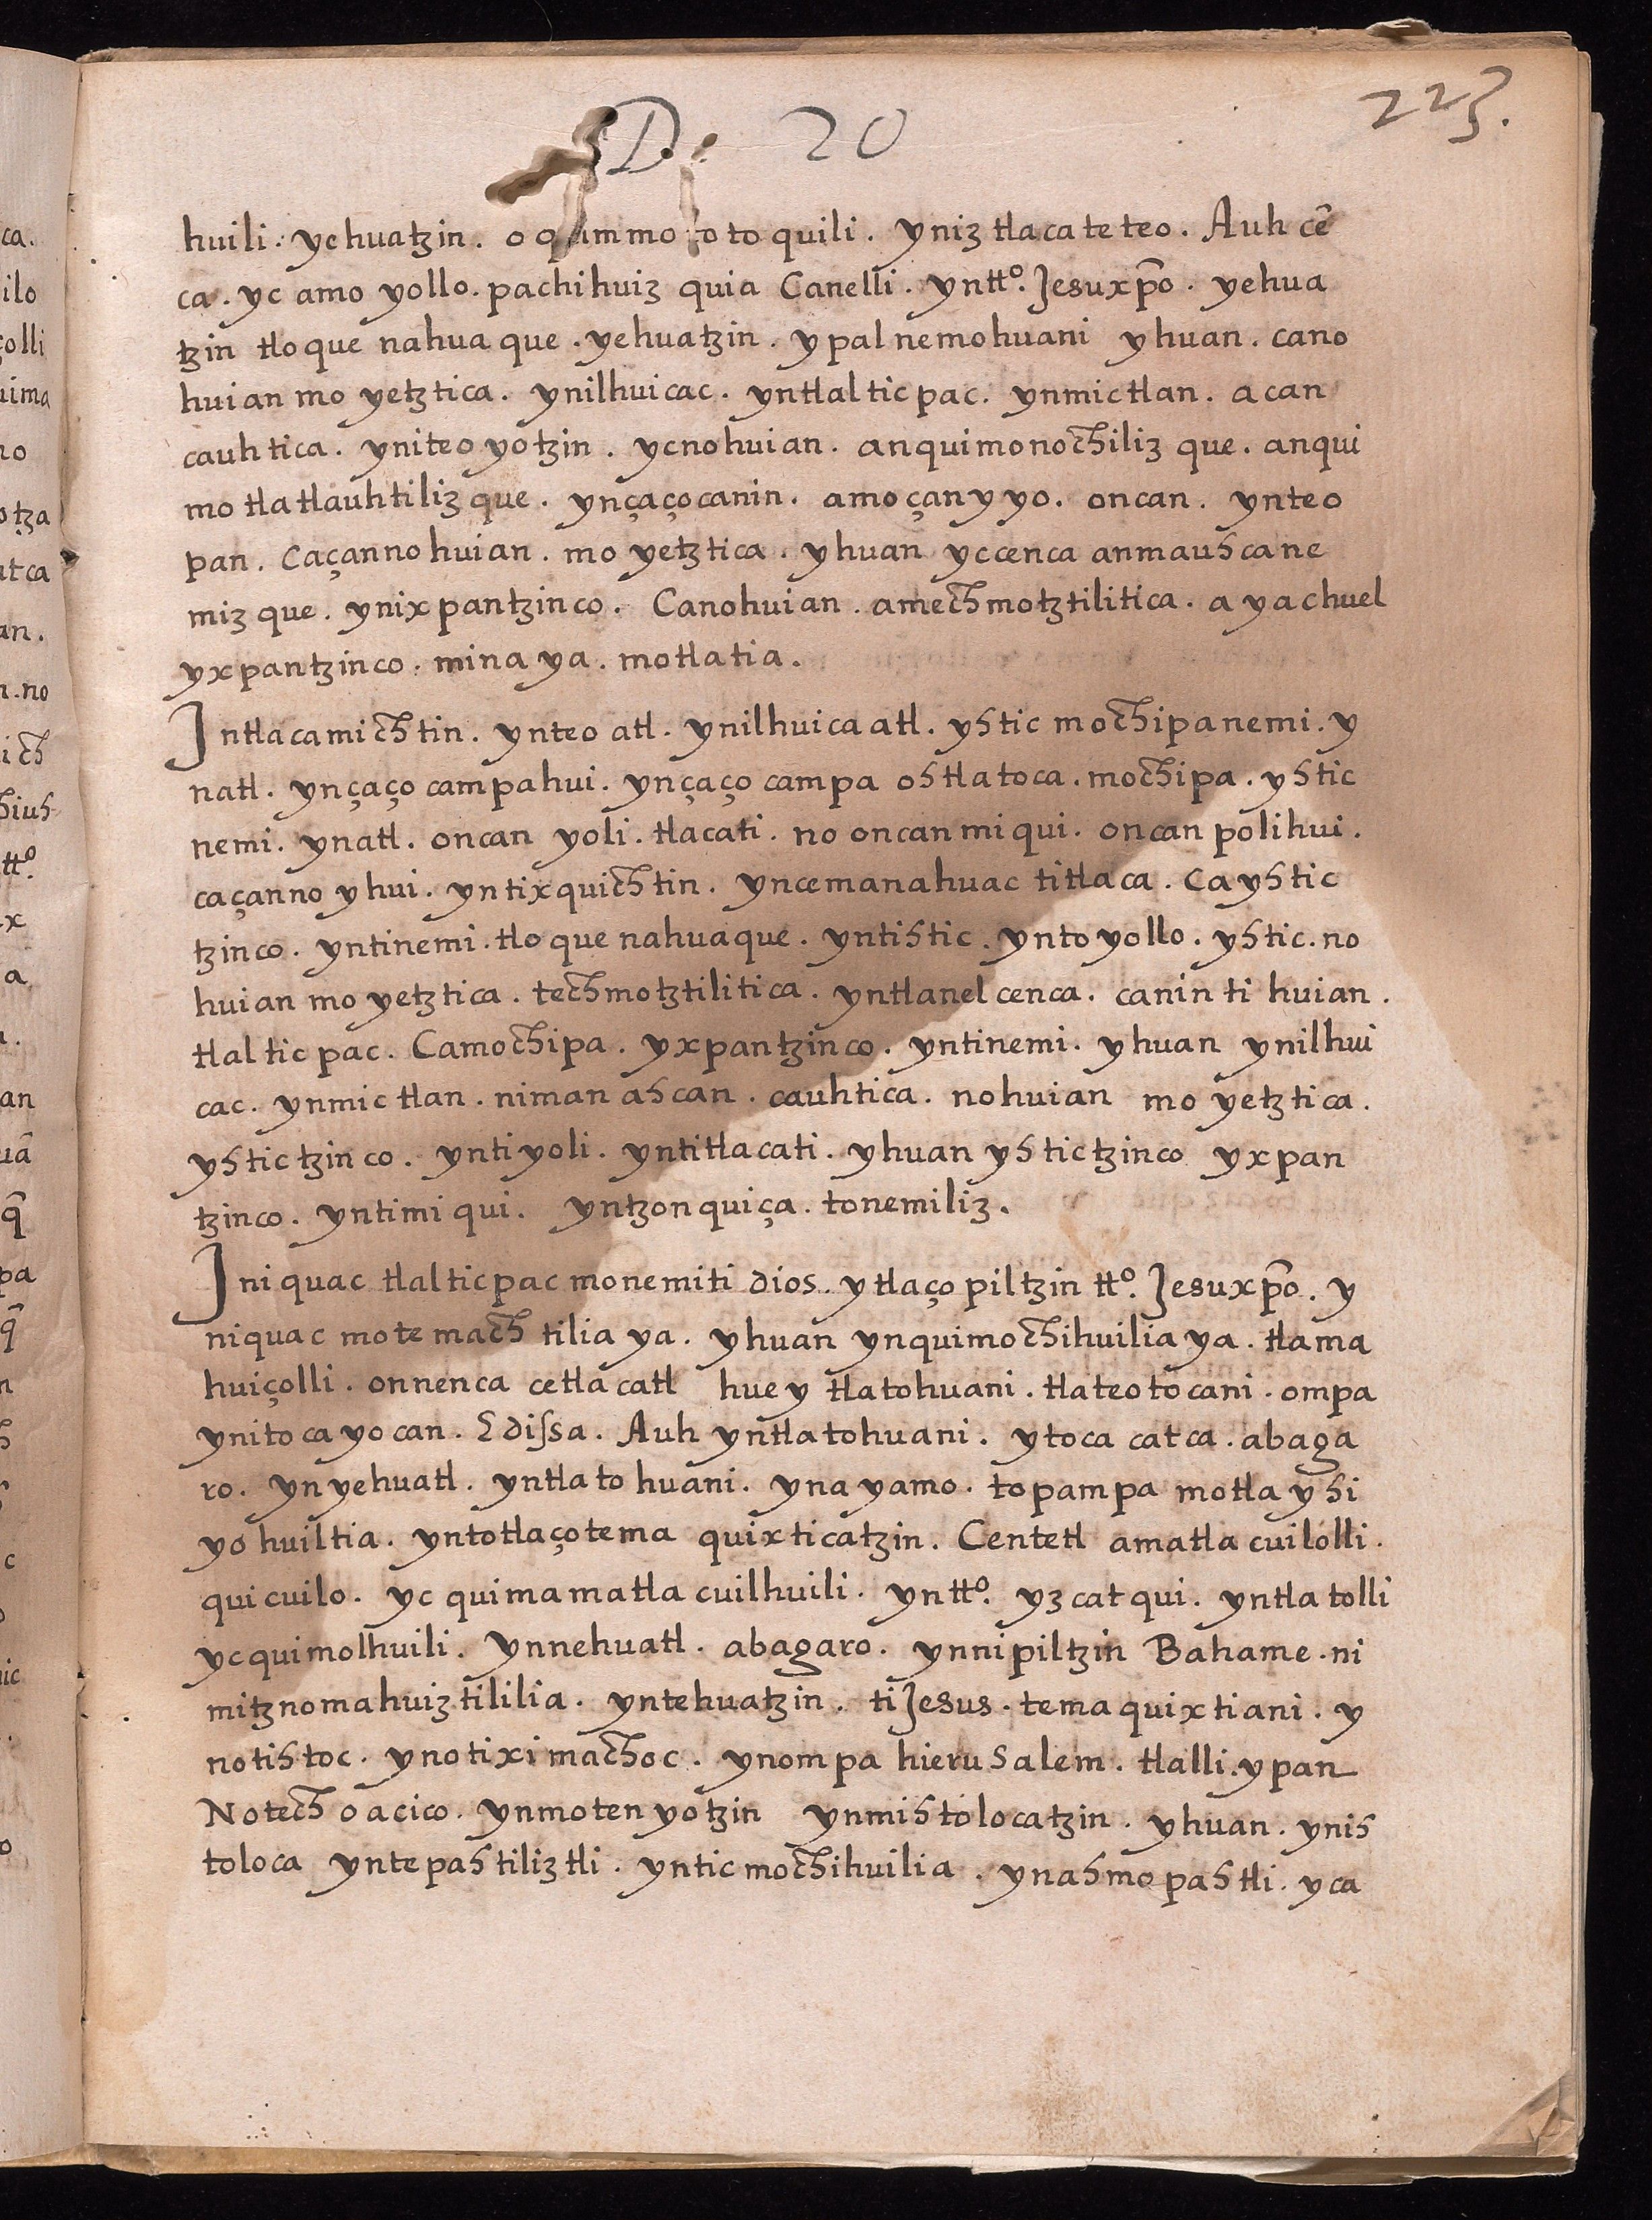 223.
D. 20
huili. yehuatzin. o quimmo to to quili. yniz tlaca te teo. Auh cē
ca. yc amo yollo. pachihuiz quia Canelli. yntto. Jesuxpo. yehua
tzin tloque nahua que. yehuatzin. ypal nemohuani yhuan. cano
huian mo yetztica. ynilhuicac. yntlal tic pac. ynmictlan. a can
cauh tica. yniteo yotzin. ycnohuian. anquimonochiliz que. anqui
mo tlatlauhtiliz que. ynçaçocanin. amo çan y yo. oncan. ynteo
pan. Caçanno huian. mo yetztica. yhuan yccenca anmauhcane
miz que. ynixpantzinco. Canohuian. amechmotztilitica. a yachuel
yxpantzinco. mina ya. motlatia.
Jntlacamichtin. ynteo atl. ynilhuica atl. yhtic mochipa nemi. y
natl. ynçaço campahui. ynçaço campa ohtlatoca. mochipa. yhtic
nemi. ynatl. oncan yoli. tlacati. no oncan miqui. oncan polihui.
caçanno yhui. yntixquichtin. yncemanahuac titlaca. Ca yhtic
tzinco. yntinemi. tlo que nahuaque. yntihtic. ynto yollo. yhtic. no
huian mo yetztica. techmotztilitica. yntlanel cenca. canin ti huian.
tlal tic pac. Camochipa. yxpantzinco. yntinemi. yhuan ynilhui
cac. ynmic tlan. niman ahcan. cauhtica. nohuian mo yetztica.
yhtic tzinco. ynti yoli. yntitlacati. yhuan yhtic tzinco yxpan
tzinco. yntimi qui. yntzonquiça. tonemiliz.
Jni quac tlal tic pac monemiti dios. ytlaço piltzin tto. Jesuxpo. y
niquac mote mach tilia ya. yhuan ynquimochihuilia ya. tlama
huiçolli. onnenca cetlacatl huey tlatohuani. tlateotocani. ompa
ynitoca yocan. Edissa. Auh yntlatohuani. ytoca catca. abaga
ro. yn yehuatl. yntlato huani. yna yamo. topampa motla yhi
yo huiltia. yntotlaçotema quixticatzin. Centetl amatla cuilolli.
qui cuilo. yc quimamatla cuilhuili. yntto. yz cat qui. yntla tolli
yc quimolhuili. Ynnehuatl. abagaro. ynni piltzin Bahame. ni
mitznomahuiztililia. yntehuatzin. ti Jesus. tema quixtiani. y
notihtoc. ynotiximachoc. ynompa hierusalem. tlalli. ypan
Notech oacico. ynmoten yotzin ynmihtolocatzin. yhuan. ynih
toloca yntepahtiliztli. yntic mochihuilia. ynahmo pahtli. yca